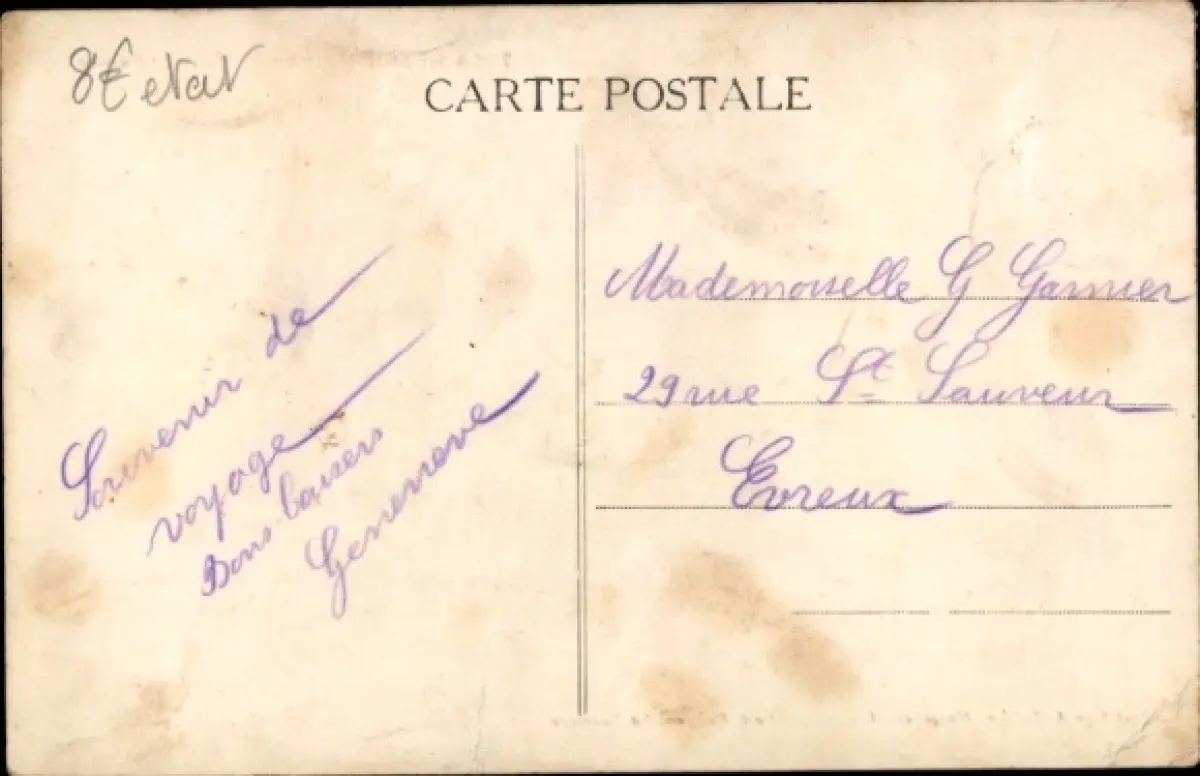 8€ etat
CARTE POSTALE
Souvenir de
voyage
Bons baisers
Genevieve
Mademoiselle G Garnier
29 rue St Sauveur
Evreux